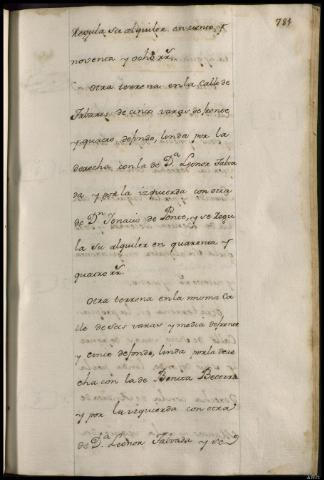 781
Regula su alquiler en ciento, y
noventa y ocho rr.
Otra terrena en la Calle de
Tabares de cinco varas de frente
y quatro de fondo, linda por la
derecha con la de D.ª Leonor Salva
da y por la izquierda con otra
de D.n Ignacio de Ponce, y se Regu
la su alquiler en quarenta y
quatro rr.
Otra terrena en la misma Ca
lle de seis varas y media de frente
y cinco de fondo, linda por la dere
cha con la de Benita Becerra
y por la izquierda con otra
de D.ª Leonor Salvada y se